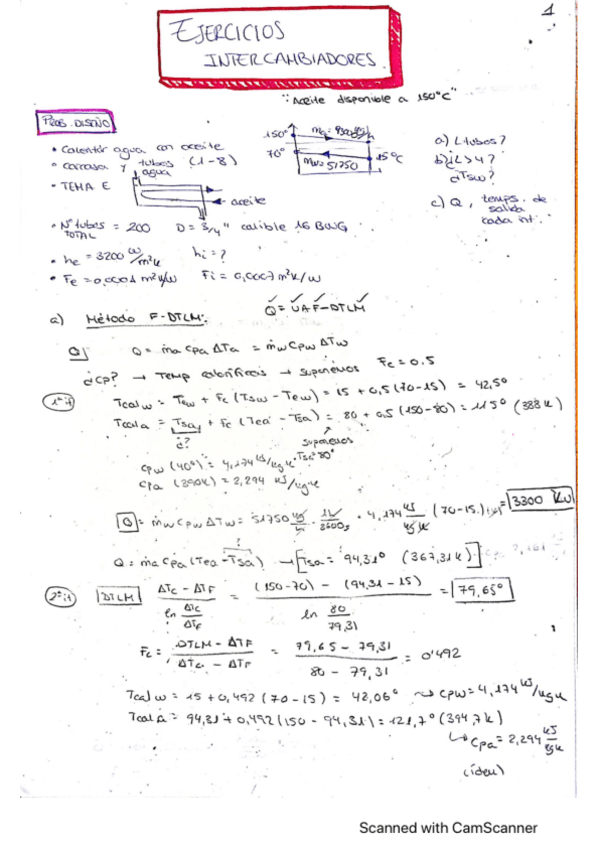 1
EJERCICIOS
INTERCAMBIADORES.
"Aceite disponible a 150°C"
PROB. DISEÑO
• Calentar agua con aceite
• carcasa y tubos (1-8)
agua
• TEMA E
aceite
150°
70°
15°C
mw = 51750
a) L tubos?
b) ¿L > 4?
¿Tsw?
c) Q, temps. de
salida
cada int.
• Nº tubos = 200 D = 3/4" calibre 16 BWG
TOTAL
• he = 3200 W/m²K hi = ?
• Fe = 0,0001 m²K/W Fi = 0,0007 m²K/W
a) Método F-DTLM: Q = U A F-DTLM
Q] Q = ṁa Cpa ΔTa = ṁw Cpw ΔTw
¿CP? → Temp caloríficas → suponemos Fc = 0.5
1ª it
Tcal w = Tew + Fc (Tsw - Tew) = 15 + 0,5 (70-15) = 42,5°
Tcal a = Tsa + Fc (Tea - Tsa) = 80 + 0,5 (150-80) = 115° (388 K)
¿?
suponemos
Tsa = 80°
Cpw (40°) = 4,174 KJ/kg K
Cpa (390K) = 2,294 KJ/kg K
Q = ṁw Cpw ΔTw = 51750 kg/h · 1h/3600s · 4,174 KJ/kg K (70-15) = 3300 KW
Q = ṁa Cpa (Tea - Tsa) → [Tsa = 94,31° (367,31 K)]
2ª it
DTLM (ΔTc - ΔTF) / (ln ΔTc/ΔTF) = ((150-70) - (94,31-15)) / (ln 80/79,31) = 79,65°
Fc = (DTLM - ΔTF) / (ΔTc - ΔTF) = (79,65 - 79,31) / (80 - 79,31) = 0'492
Tcal w = 15 + 0,492 (70-15) = 42,06° → Cpw = 4,174 KJ/kg K
Tcal A = 94,31 + 0,492 (150 - 94,31) = 121,7° (394,7 K)
↳ Cpa = 2,294 KJ/kg K
(ídem)
Scanned with CamScanner